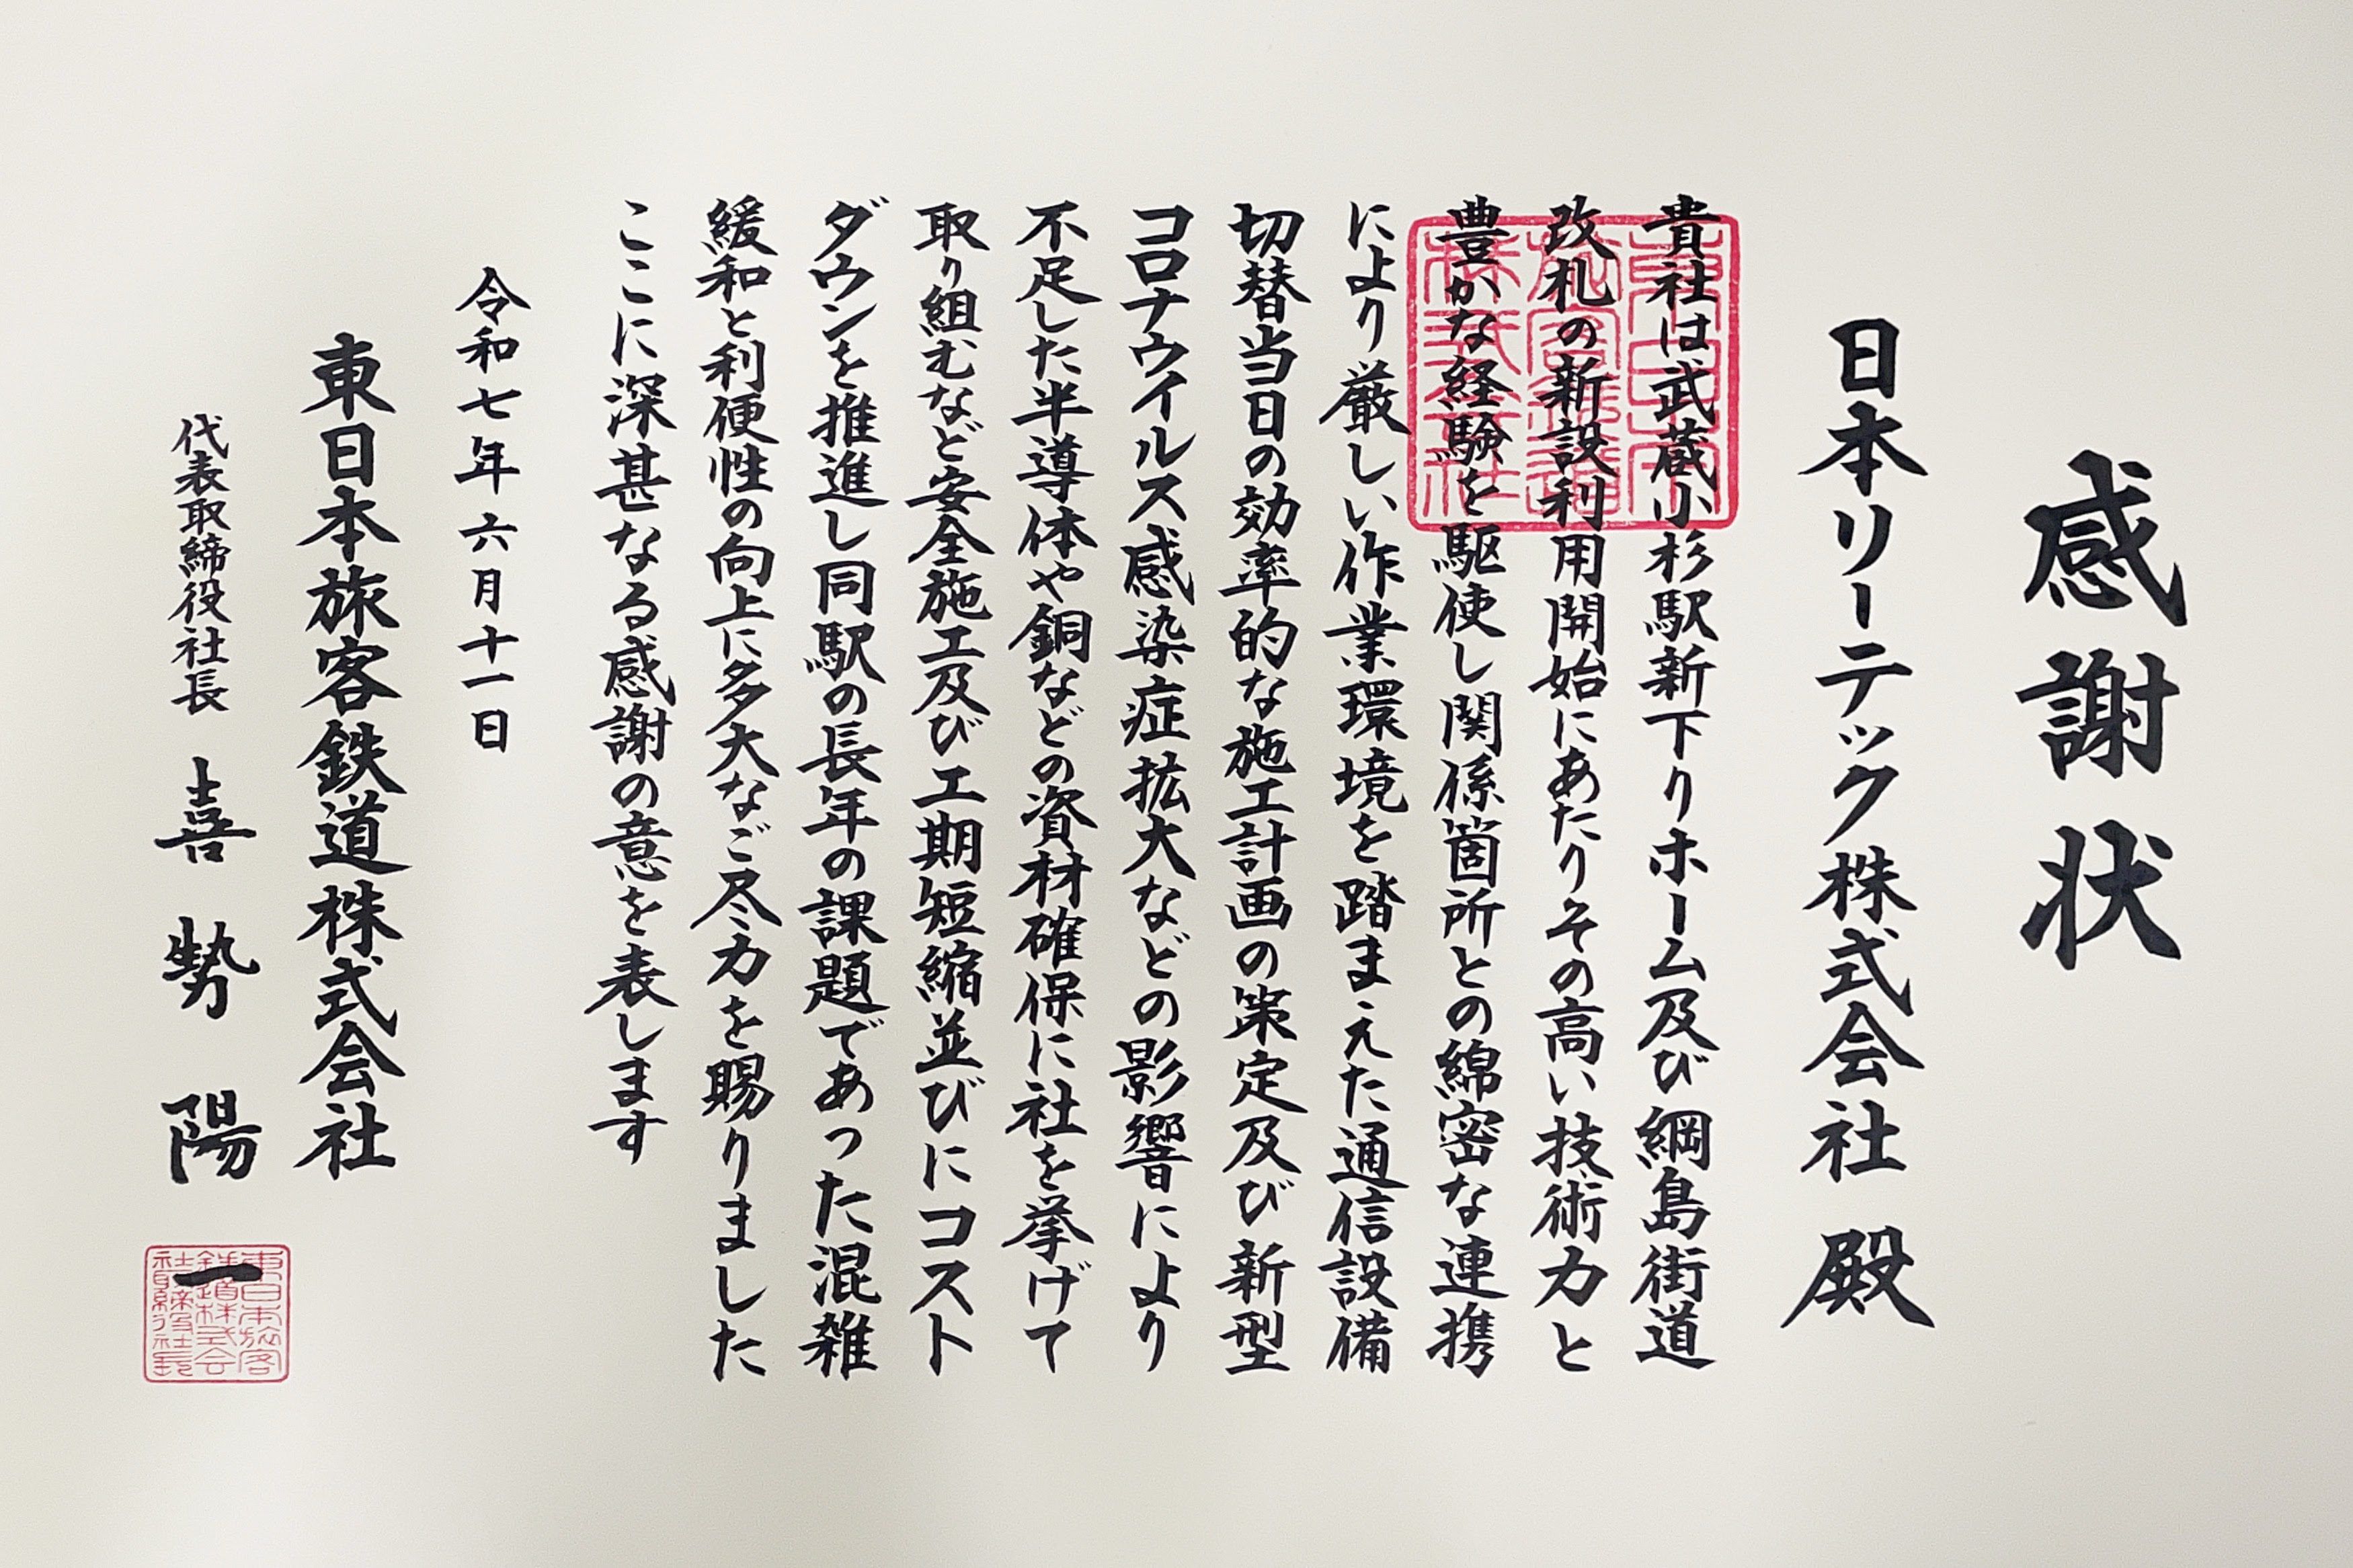 感謝状
日本リーテック株式会社 殿
貴社は武蔵小杉駅新下りホーム及び綱島街道
改札の新設利用開始にあたりその高い技術力と
豊かな経験を駆使し関係箇所との綿密な連携
により厳しい作業環境を踏まえた通信設備
切替当日の効率的な施工計画の策定及び新型
コロナウイルス感染症拡大などの影響により
不足した半導体や銅などの資材確保に社を挙げて
取り組むなど安全施工及び工期短縮並びにコスト
ダウンを推進し同駅の長年の課題であった混雑
緩和と利便性の向上に多大なご尽力を賜りました
ここに深甚なる感謝の意を表します
令和七年六月十一日
東日本旅客鉄道株式会社
代表取締役社長 喜㔟陽一
東日本旅客鉄道株式会社
東日本旅客鉄道株式会社社長